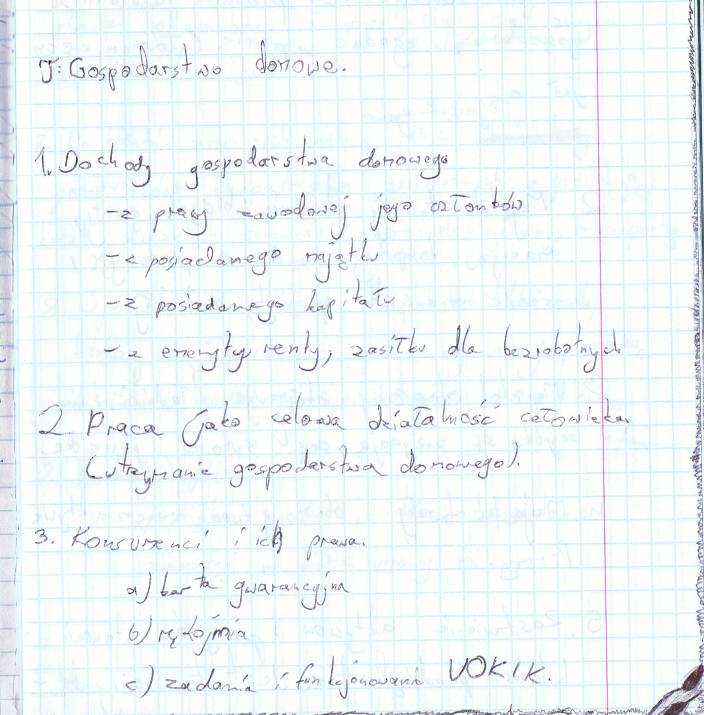 T: Gospodarstwo domowe.
1. Dochody gospodarstwa domowego
- z pracy zawodowej jego członków
- z posiadanego majątku
- z posiadanego kapitału
- z emerytury, renty, zasiłku dla bezrobotnych
2. Praca jako celowa działalność człowieka
(utrzymanie gospodarstwa domowego).
3. Konsumenci i ich prawa.
a) karta gwarancyjna
b) rękojmia
c) zadania i funkcjonowanie UOKIK.